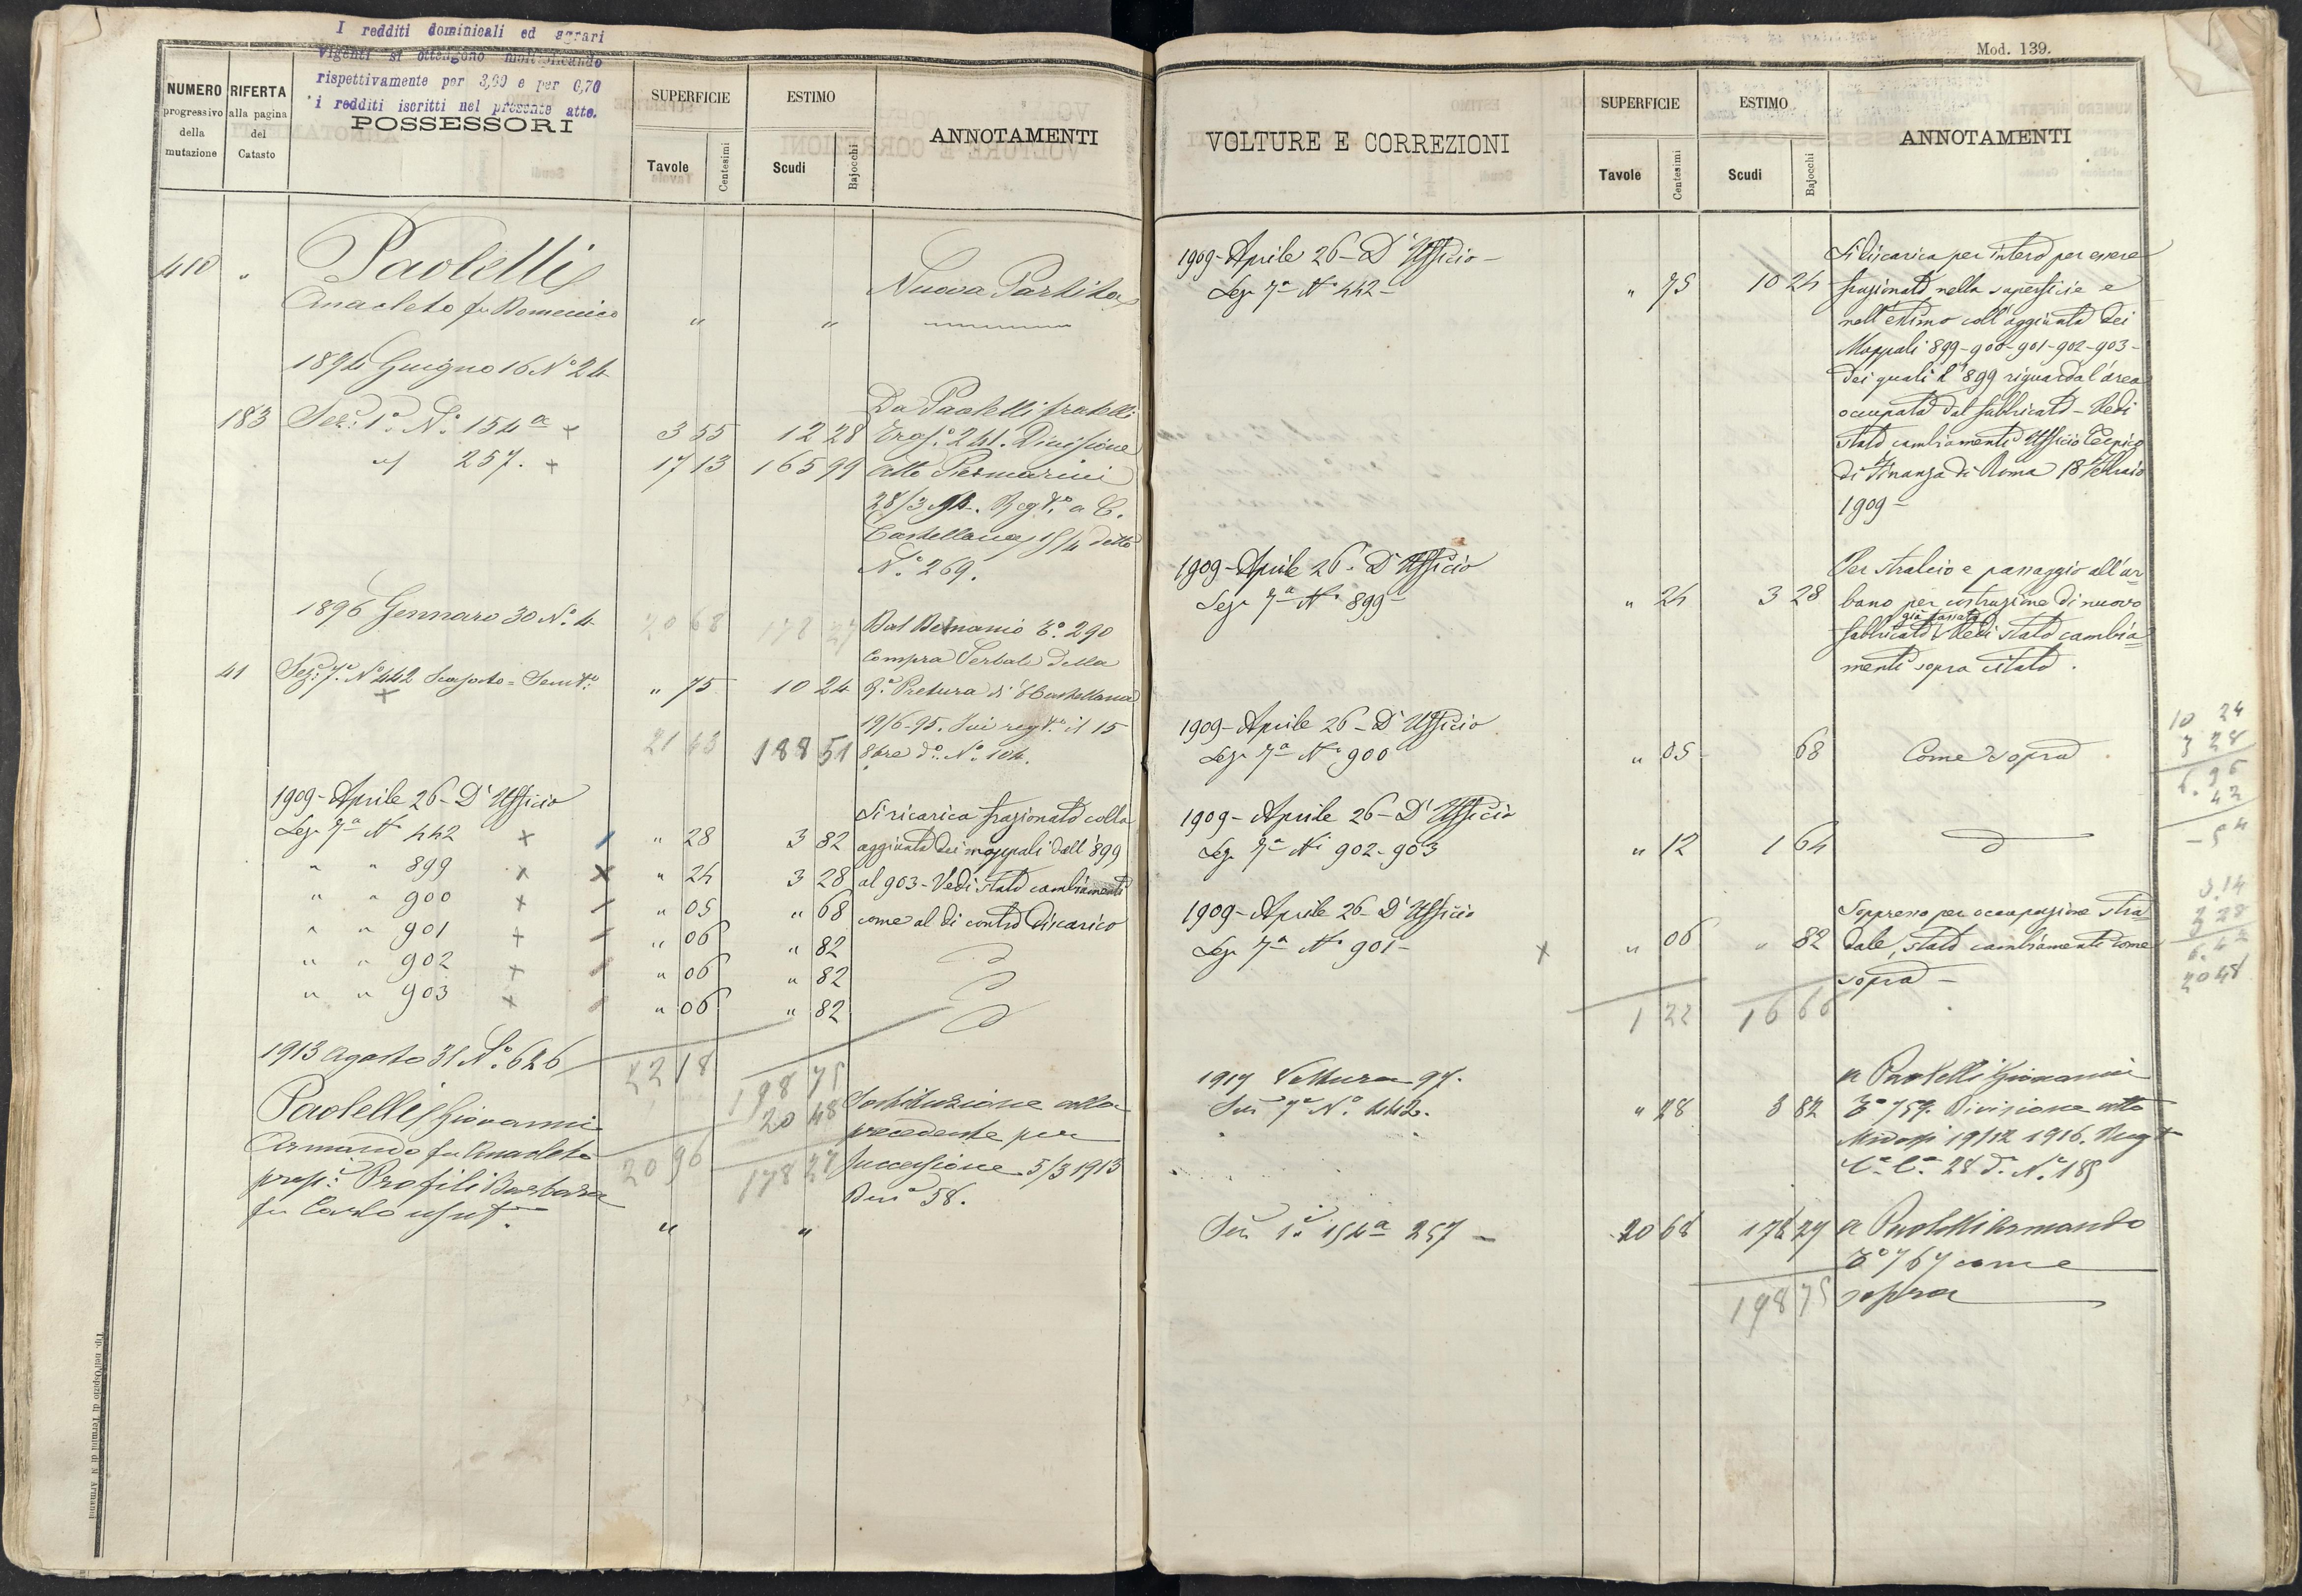 I redditi dominicali ed agrari
vigenti si ottengono moltiplicando
rispettivamente per 3,90 e per 0,70
i redditi iscritti nel presente atto.
NUMERO progressivo della mutazione
RIFERTA alla pagina del Catasto
POSSESSORI
SUPERFICIE
Tavole Centesimi
ESTIMO
Scudi Bajocchi
ANNOTAMENTI
410 " Paolelli
Anacleto fu Domenico " " Nuova Partita
1894 Giugno 16 N° 24
Da Paolelli fratelli
183 Sez. 1a N.° 154 a + 3 55 12 28 Tras.° 241. Divisione
" 257. + 17 13 165 99 atto Piermarini
28/3 94. Regto a C.
Castellana 15/4 detto
N.° 269.
1896 Gennaro 30 N.° 4 20 68 178 27 Dal Demanio T.° 290
Compra Verbale della
41 Sez. 7a N° 442 " 75 10 24 Ra Pretura di C Castellana
+
19/6-95. Ivi regto il 15
21 43 188 51 8bre do N.° 104.
1909 - Aprile 26 - D'Ufficio
Sez. 7a N° 442 + " 28 3 82
Si ricarica frazionato colla
aggiunta dei mappali dall'899
" " 899 x X " 24 3 28 al 903 - Vedi stato cambiamenti
" " 900 + " 05 " 68 come al di contro discarico
" " 901 + " 06 " 82
" " 902 + " 06 " 82
" " 903 + " 06 " 82
1913 Agosto 31 N.° 626 22 18 198 75
20 48
Paolelli Giovanni
Sostituzione alla
Armando fu Anacleto
precedente per
prop.i Profili Barbara 20 96 178 27 successione 5/3 1913
fu Carlo usuf. " " Den.a 58.
Tip. nell'Ospizio di Termini di N Armanni
Mod. 139.
VOLTURE E CORREZIONI
SUPERFICIE
Tavole Centesimi
ESTIMO
Scudi Bajocchi
ANNOTAMENTI
1909 - Aprile 26 - D'Ufficio -
Sez. 7a N° 442 - " 75 10 24
Si discarica per intero per essere
frazionato nella superficie e
nell'estimo coll'aggiunta dei
Mappali 899-900-901-902-903-
dei quali l'899 riguarda l'area
occupata dal fabbricato - Vedi
stato cambiamenti Ufficio Tecnico
di Finanza di Roma 18 Febbraio
1909 -
1909 - Aprile 26 - D'Ufficio
Sez. 7a N° 899 - " 24 3 28
Per stralcio e passaggio all'ur
bano per costruzione di nuovo
già passata
fabbricato Vedi stato cambia
menti sopra citato.
1909 - Aprile 26 - D'Ufficio
Sez. 7a N° 900 " 05 68 Come sopra
1909 - Aprile 26 - D'Ufficio
Sez. 7a Ni 902-903 " 12 1 64
1909 - Aprile 26 - D'Ufficio
Sez. 7a N° 901 - x " 06 " 82
Soppresso per occupazione stra
dale, stato cambiamenti come
sopra -
1 22 16 66
10 24
3 28
6.96
42
- 54
3.14
3 28
6.42
20 48
1917 Voltura 97.
Sez. 7a N.° 442. " 28 3 82
a Paolelli Giovanni
T° 759. Divisione atto
19/12 1916. Regto
Ca Ca 28 do N.° 185
Sez. 1a 154 a 257 - 20 68 178 27 a Paolelli Armando
T° 767 come
198 75 sopra